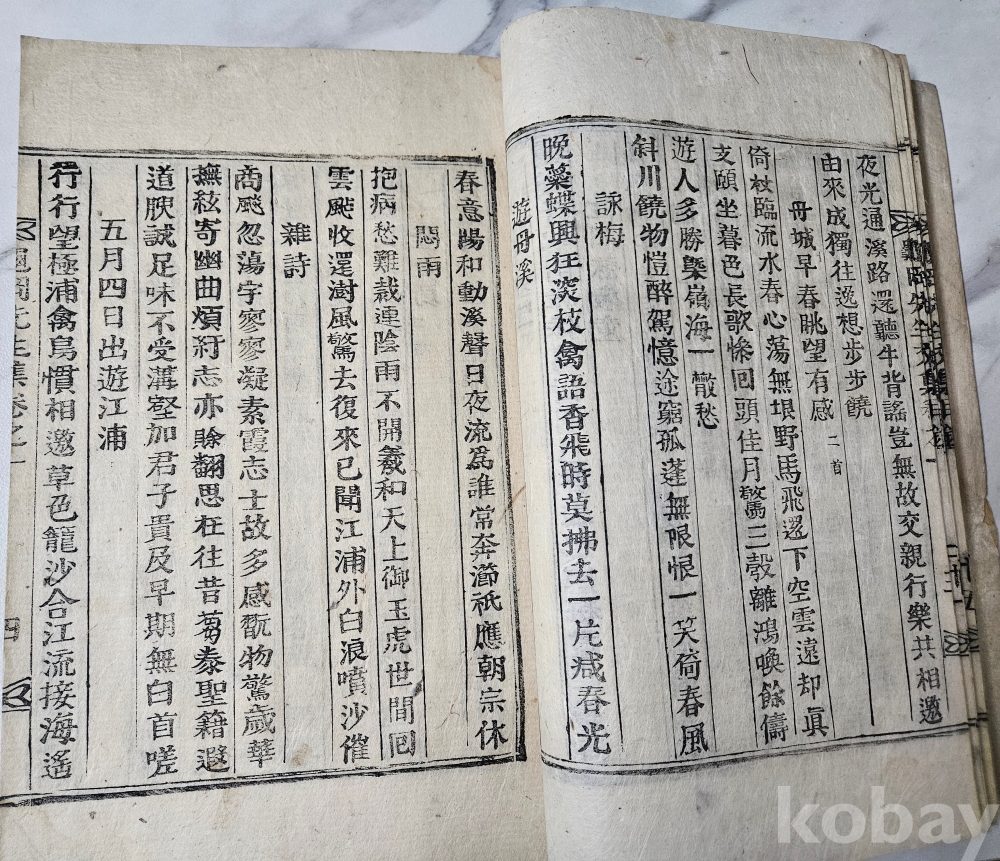 夜光通溪路還聽牛背謠豈無故交親行樂共相邀
由來成獨往逸想步步饒
丹城早春眺望有感 二首
倚杖臨流水春心蕩無垠野馬飛還下空雲遠却眞
支頤坐暮色長歌慘回頭佳月驚三彀離鴻喚餘儔
遊人多勝槩嶺海一散愁
斜川饒物愷醉駕憶途窮孤蓬無限恨一笑倚春風
詠梅
晩蘂蝶興狂淡枝禽語香飛時莫拂去一片減春光
遊丹溪
春意陽和動溪聲日夜流爲誰常奔瀄祇應朝宗休
悶雨
抱病愁難裁連陰雨不開羲和天上御玉虎世間回
雲颷收還澍風驚去復來已聞江浦外白浪噴沙催
雜詩
商颷忽蕩宇寥寥凝素霞志士故多感翫物驚歲華
撫絃寄幽曲煩紆志亦賒翻思在往昔蒭泰聖籍遐
道腴誠足味不受溝壑加君子貴及早期無白首嗟
五月四日出遊江浦
行行望極浦禽鳥慣相邀草色籠沙合江流接海遙
先生集卷之一
四
kobay